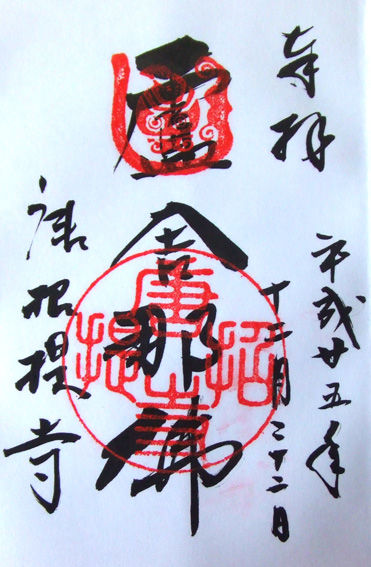 奉拝
平成廿五年
十二月二十二日
盧舎那佛
唐招提寺
唐招提寺